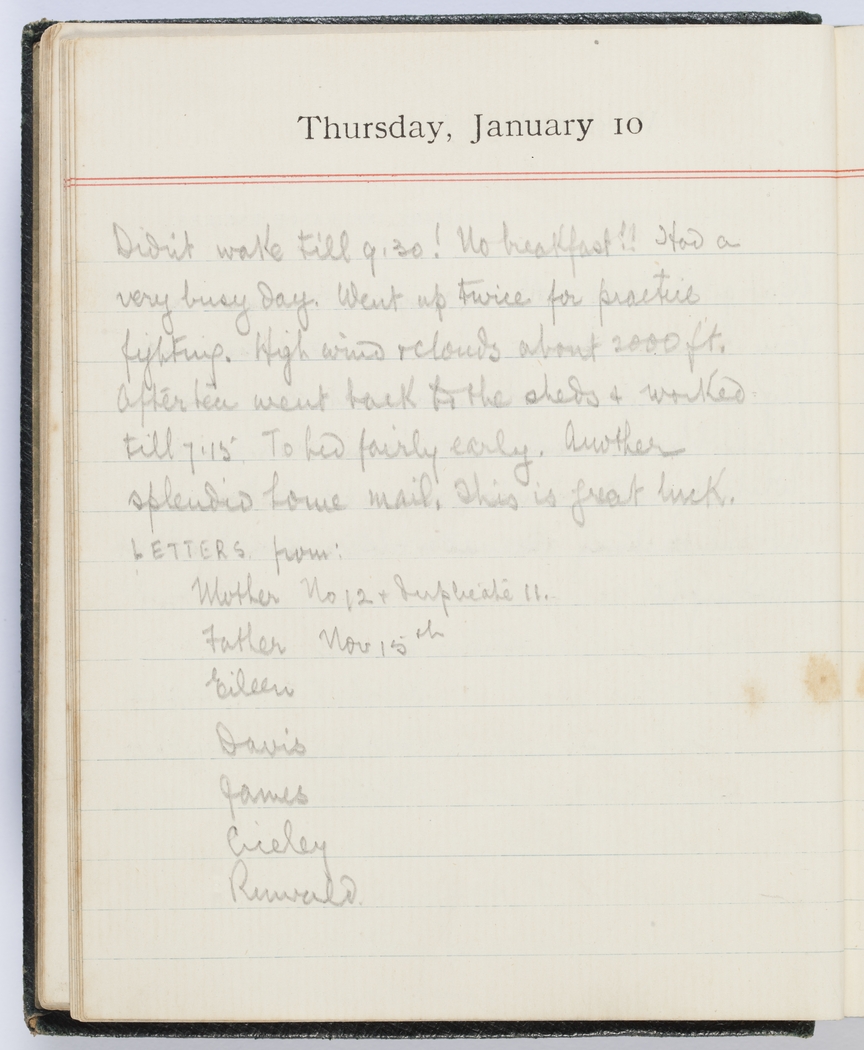 Thursday, January 10
Didn't wake till 9.30! No breakfast!! Had a
very busy day. Went up twice for practice
fighting. High wind & clouds about 2000 ft.
After tea went back to the sheds & worked
till 7.15. To bed fairly early. Another
splendid home mail. This is great luck.
LETTERS from:
Mother No 12 & duplicate 11.
Father Nov 15th
Eileen
Davis
James